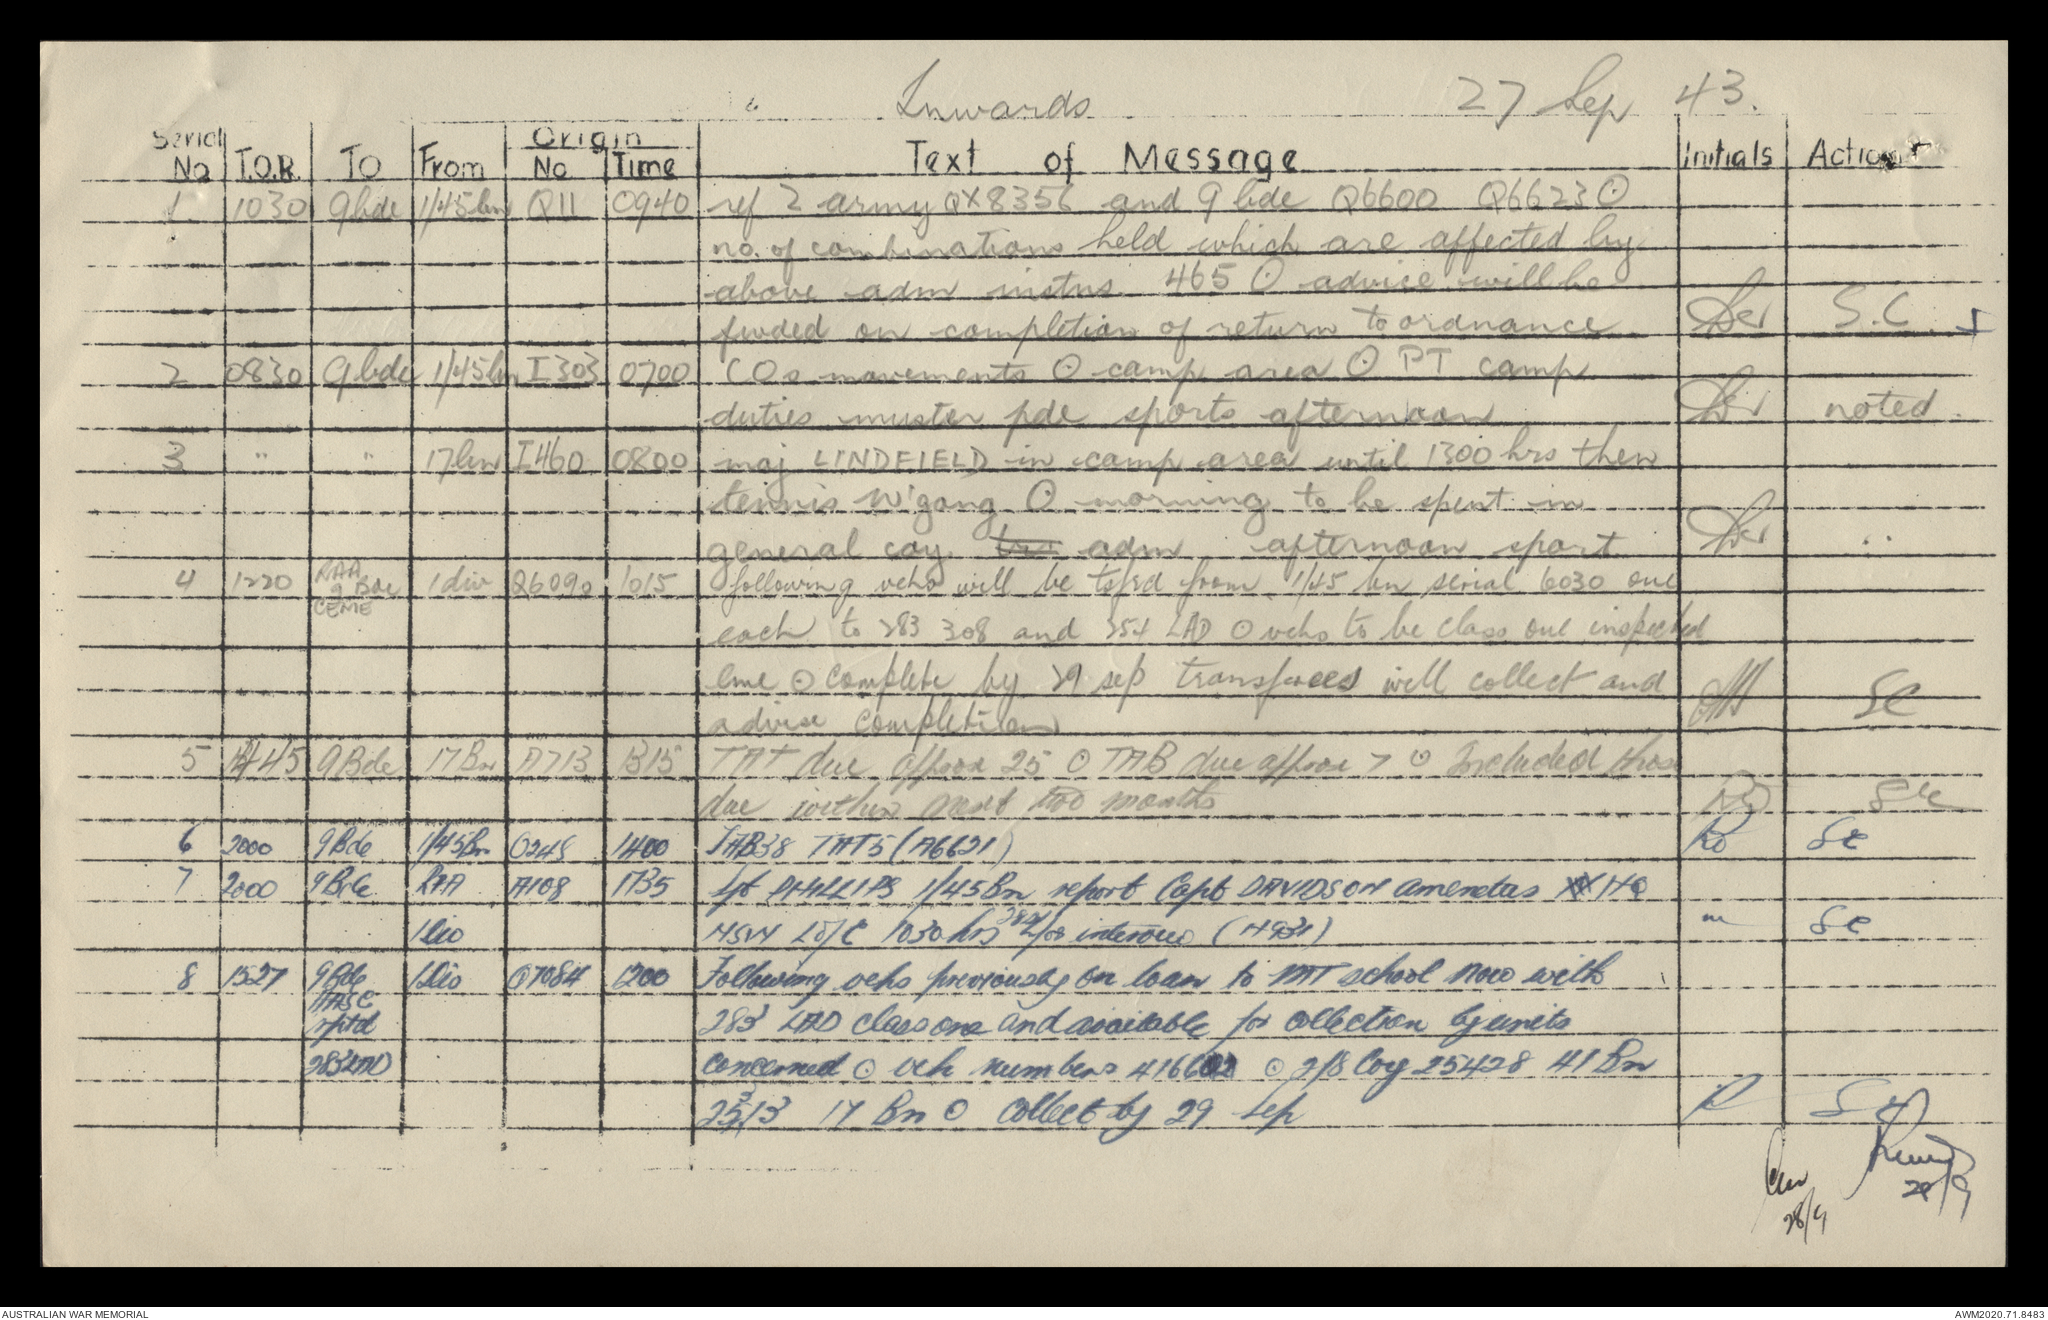 Inwards 27 Sep 43.
Serial No T.O.R. TO From Origin No Time Text of Message Initials Action
1. 1030 9 bde 1/45 bn Q11 0940 ref 2 army QX8356 and 9 bde Q6600 Q6623 ⊙
no. of combinations held which are affected by
above adm instns 465 ⊙ advice will be
fwded on completion of return to ordnance S.C.
2 0830 9 bde 1/45 bn I303 0700 COs movements ⊙ camp area ⊙ PT camp
duties muster pde sports afternoon noted.
3 " " 17 bn I460 0800 maj LINDFIELD in camp area until 1300 hrs then
tennis W'gong ⊙ morning to be spent in
general coy. adm afternoon sport "
4 1220 RAA 9 Bde CEME 1 div Q6090 1015 following vehs will be tsfrd from 1/45 bn serial 6030 one
each to 283 308 and 254 LAD ⊙ vehs to be class one inspected
eme ⊙ complete by 29 sep transferees will collect and SC
advise completion
5 1445 9 Bde 17 Bn A713 1315 TAT due approx 25 ⊙ TAB due approx 7 ⊙ Included those
due within next two months SC
6 2000 9 Bde 1/45 Bn 1400 TAB38 TAT5 (A6621) SC
7 2000 9 Bde RAA A108 1735 Lt PHILLIPS 1/45 Bn report Capt DAVIDSON amenetas HQ
1 Div NSW L of C 1030 hrs 28th for interview " SC
8 1527 9 Bde 1 Div Q7084 1200 Following vehs previously on loan to MT school now with
AASC
rptd 283 LAD class one and available for collection by units
283 LAD concerned ⊙ veh numbers ⊙ 2/8 Coy 25428 41 Bn
17 Bn ⊙ Collect by 29 Sep
28/9
AUSTRALIAN WAR MEMORIAL AWM2020.71.8483